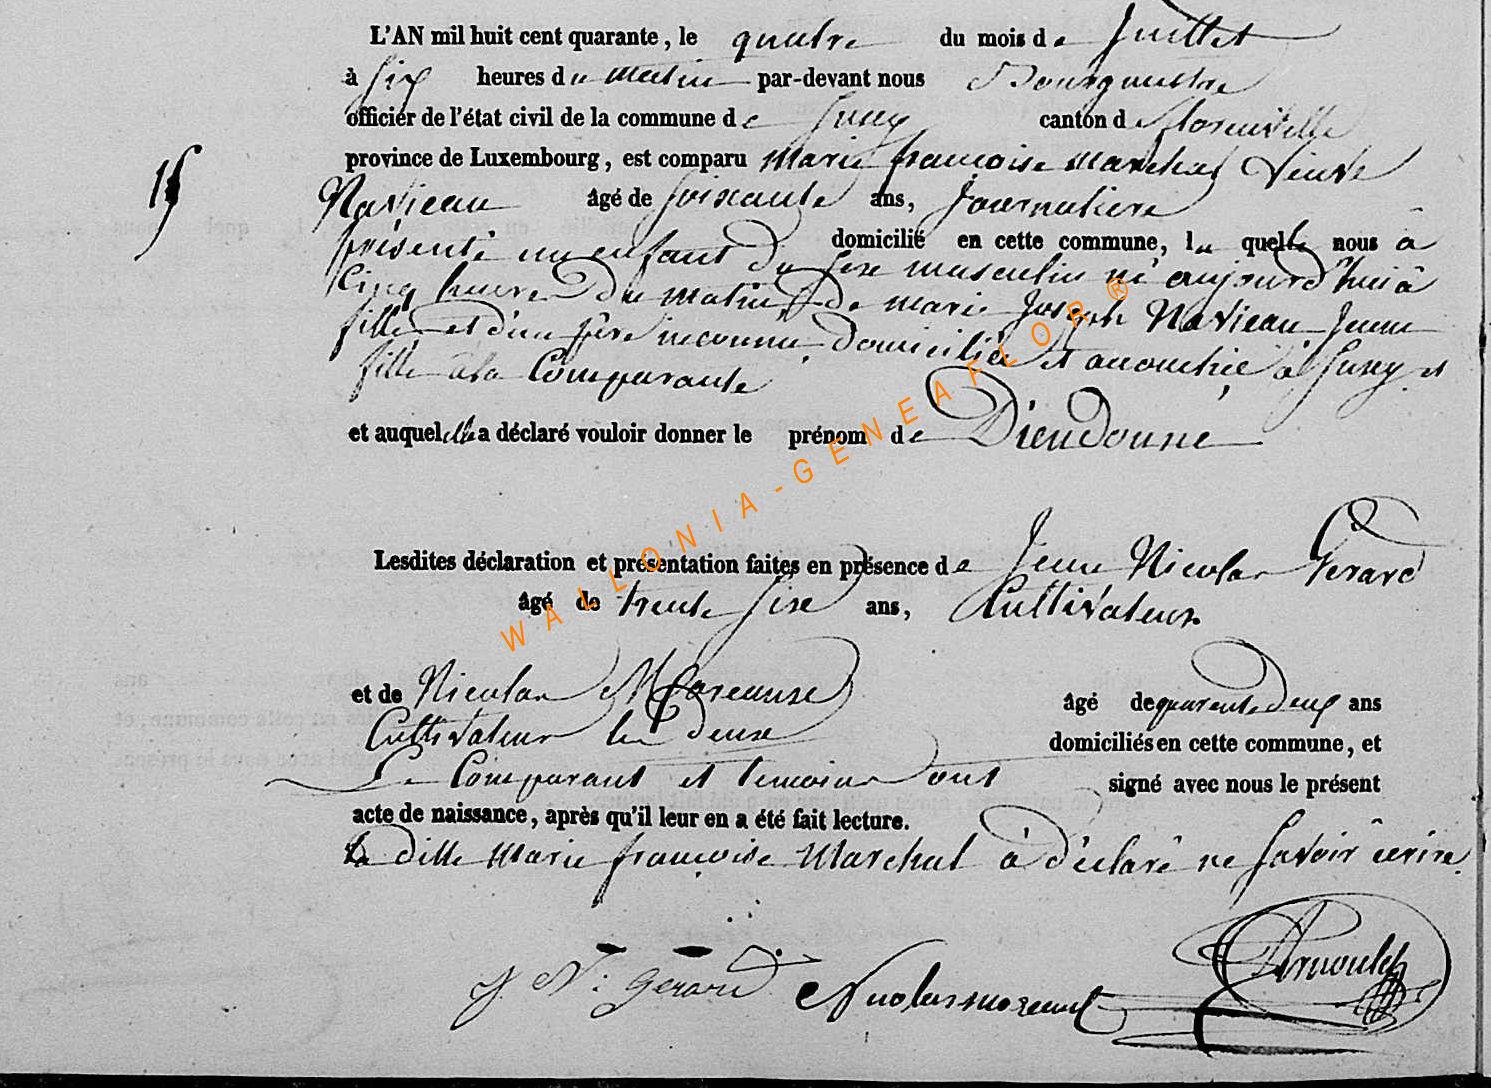 L'AN mil huit cent quarante, le quatre du mois de Juillet
à Six heures du Matin par-devant nous Bourgmestre
officier de l'état civil de la commune de Suxy canton de florenville
province de Luxembourg, est comparu Marie francoise Marchal Veuve
15
Navieau âgé de Soixante ans, Journaliere
domicilié en cette commune, la quelle nous à
présenté un enfant du Sexe masculin né aujourd'huì à
Cinq heures du matin, de marie Joseph Navieau Jeune
fille et d'un père inconnu, domiciliée et accouchée à Suxy et
fille à la Comparante
et auquel elle a déclaré vouloir donner le prénom de Dieudonné
Lesdites déclaration et présentation faites en présence de Jean Nicolas Gérard
âgé de trente Sixe ans, Cultivateur
et de Nicolas Moreaux âgé de quarente deux ans
Cultivateur les deux domiciliés en cette commune, et
Le Comparant et temoins ont signé avec nous le présent
acte de naissance, après qu'il leur en a été fait lecture.
la ditte Marie françoise Marchal à déclaré ne Savoir écrire
J N. Gerard Nicolas moreaux Arnould
WALLONIA-GENEAFLOR®